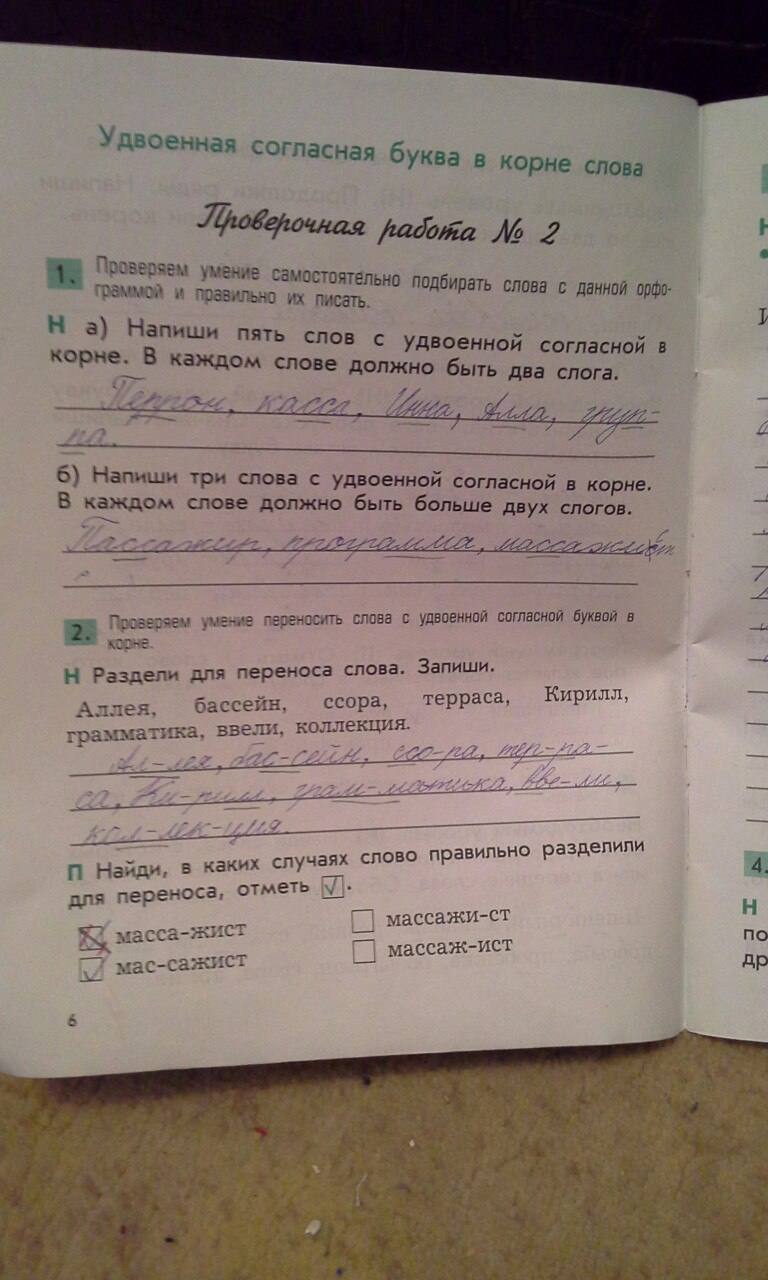 Удвоенная согласная буква в корне слова
Проверочная работа № 2
1. Проверяем умение самостоятельно подбирать слова с данной орфо-
граммой и правильно их писать.
Н а) Напиши пять слов с удвоенной согласной в
корне. В каждом слове должно быть два слога.
Перрон, касса, Инна, Алла, груп-
па.
б) Напиши три слова с удвоенной согласной в корне.
В каждом слове должно быть больше двух слогов.
Пассажир, программа, массажист
2. Проверяем умение переносить слова с удвоенной согласной буквой в
корне.
Н Раздели для переноса слова. Запиши.
Аллея, бассейн, ссора, терраса, Кирилл,
грамматика, ввели, коллекция.
Ал-лея, бас-сейн, ссо-ра, тер-ра-
са, Ки-рилл, грам-матика, вве-ли,
кол-лек-ция.
П Найди, в каких случаях слово правильно разделили
для переноса, отметь ☑.
масса-жист массажи-ст
мас-сажист массаж-ист
6
4.
Н
по
др